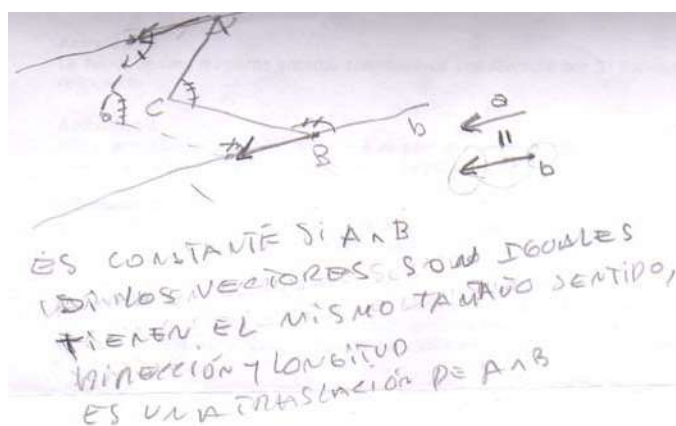 A
C
B
b
a
b
ES CONSTANTE SI A ∧ B
LOS VECTORES SON IGUALES
TIENEN EL MISMO TAMAÑO SENTIDO,
DIRECCIÓN Y LONGITUD
ES UNA TRASLACIÓN DE A ∧ B